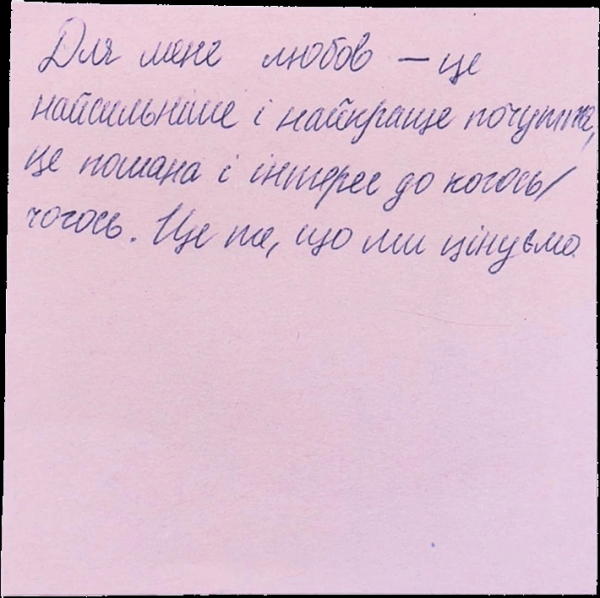 Для мене любов – це
найсильніше і найкраще почуття,
це пошана і інтерес до когось/
чогось. Це те, що ми цінуємо